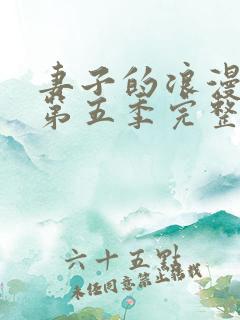 妻子的浪漫
第五季完整
六十五點
未经同意禁止转载